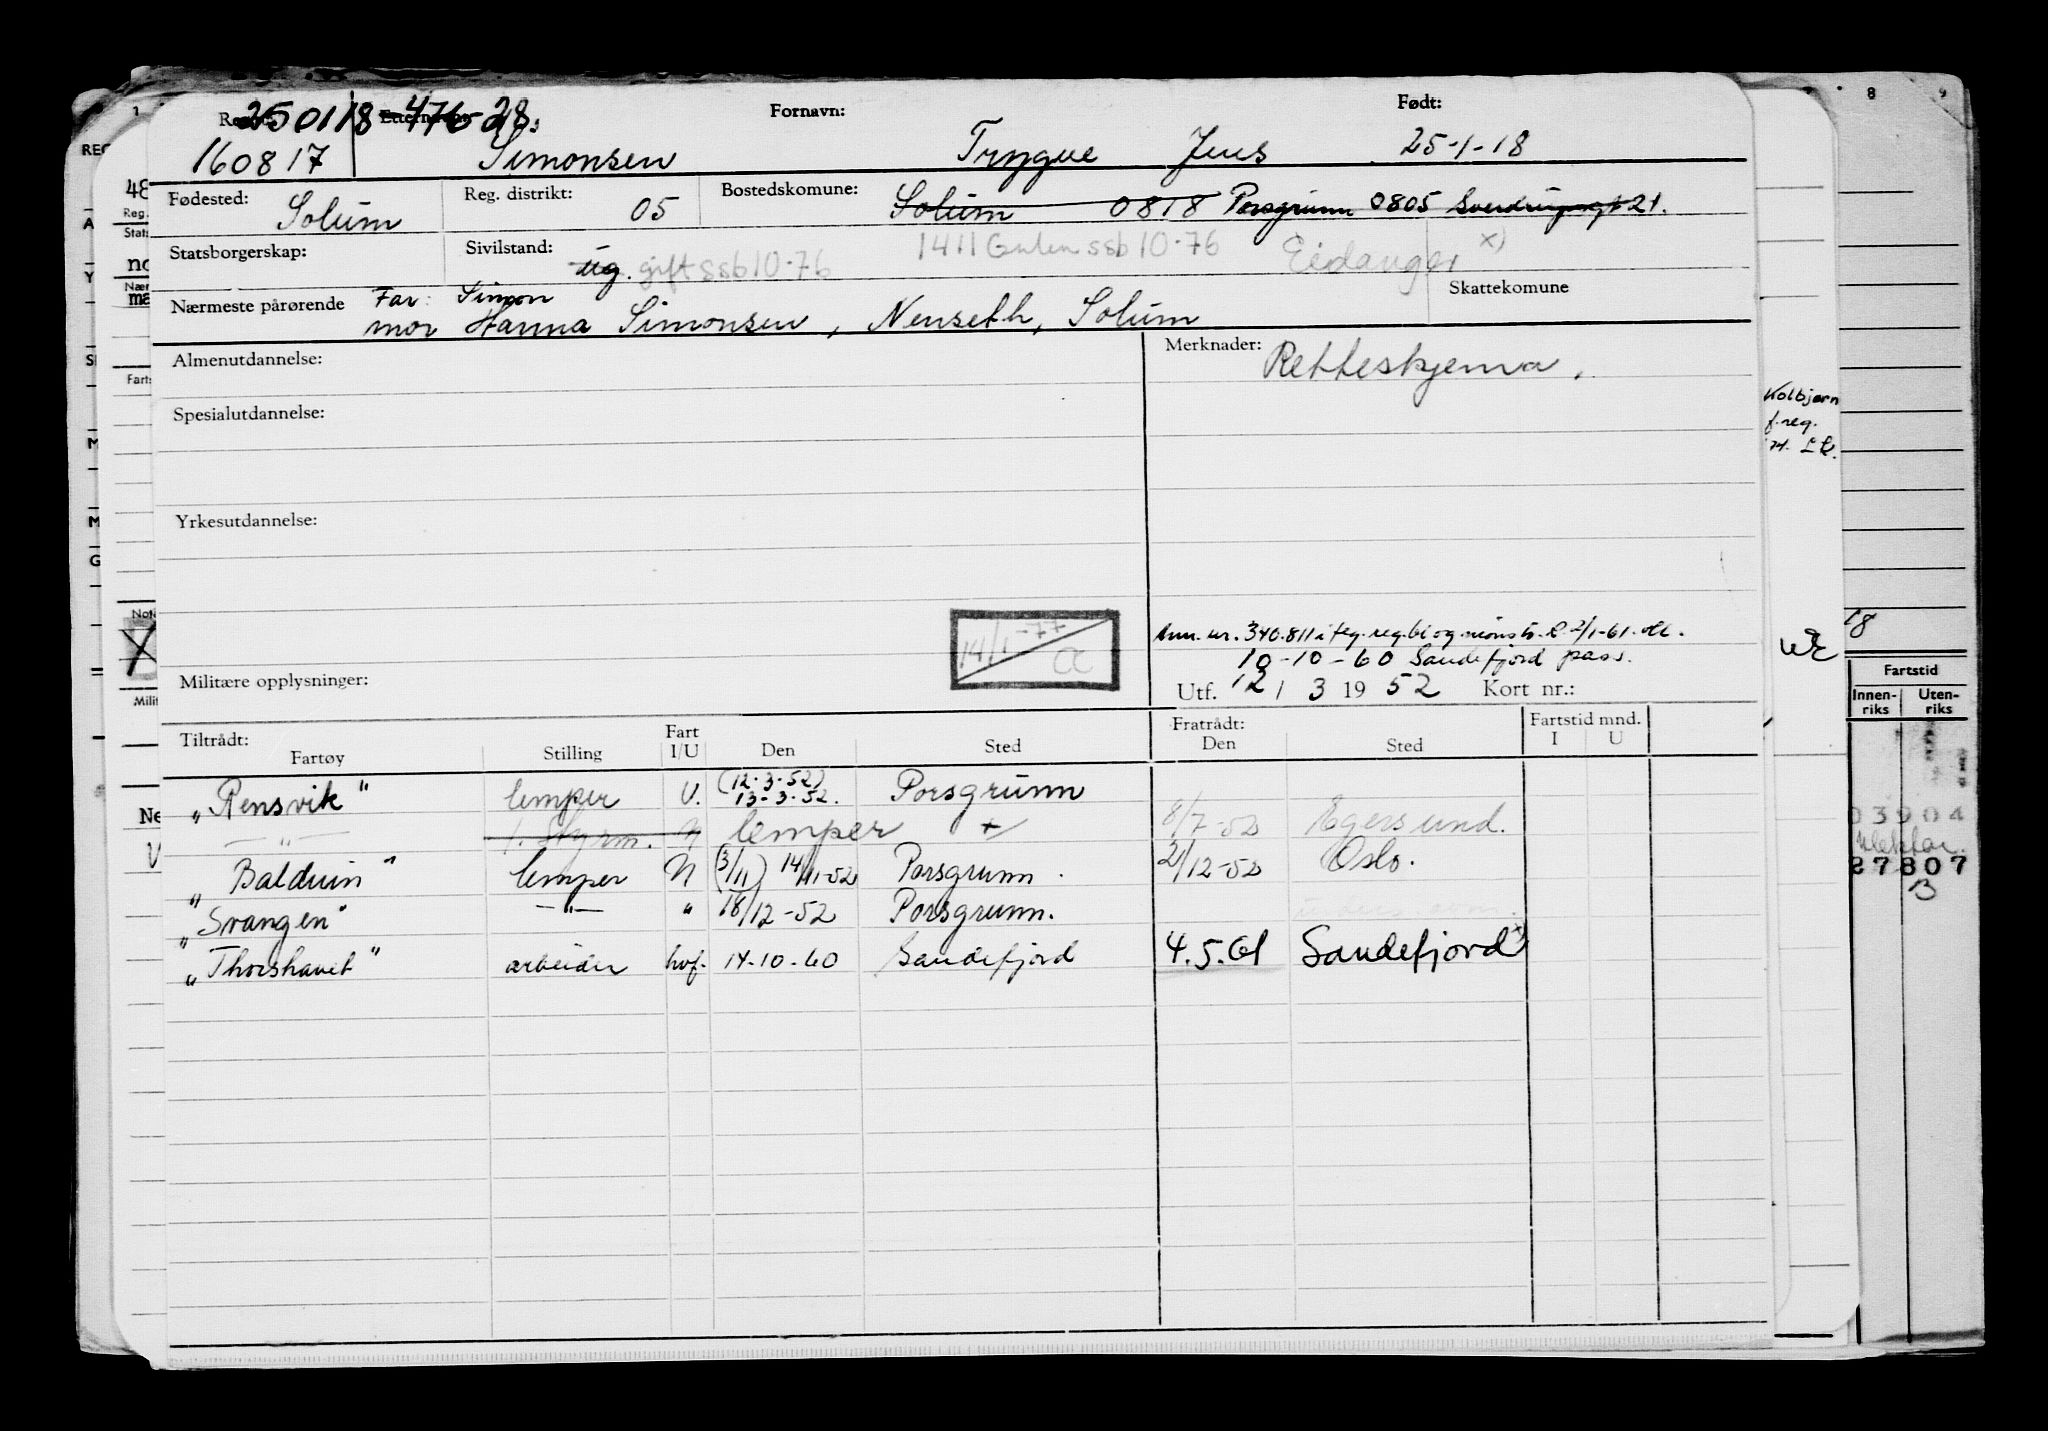 250118-476-28.
Fornavn: Født:
160817 Simonsen Trygve Jens 25-1-18
Fødested: Solum Reg. distrikt: 05 Bostedskomune: Solum 0818 Porsgrunn 0805 Sverdrupsgt 21.
Statsborgerskap: Sivilstand: ug. gift ssb 10-76 1411 Gulen ssb 10-76 Eidanger x)
Nærmeste pårørende Far: Simon Skattekomune
mor Hanna Simonsen, Nenseth, Solum
Almenutdannelse: Merknader: Retteskjema.
Spesialutdannelse:
Yrkesutdannelse:
14/1-77
Anm. nr. 340.811 i
10-10-60 Sandefjord pass.
Militære opplysninger: Utf. 12 / 3 19 52 Kort nr.:
Tiltrådt: Fart Fratrådt: Fartstid mnd.
Fartøy Stilling I/U Den Sted Den Sted I U
"Rensvik" lemper U. (12-3-52) 13-3-52. Porsgrunn
— " — 1. styrm. N lemper + 8/7-52 Egersund.
"Balduin" lemper N (3/11) 14/11-52 Porsgrunn. 2/12-52 Oslo.
"Svangen" — " — " 18/12-52 Porsgrunn.
"Thorshavet" arbeider hvf. 14-10-60 Sandefjord 4.5.61 Sandefjord
Kolbjørn
f.reg.
8 9
18
Fartstid
Innen- Uten-
riks riks
03904
27807
B